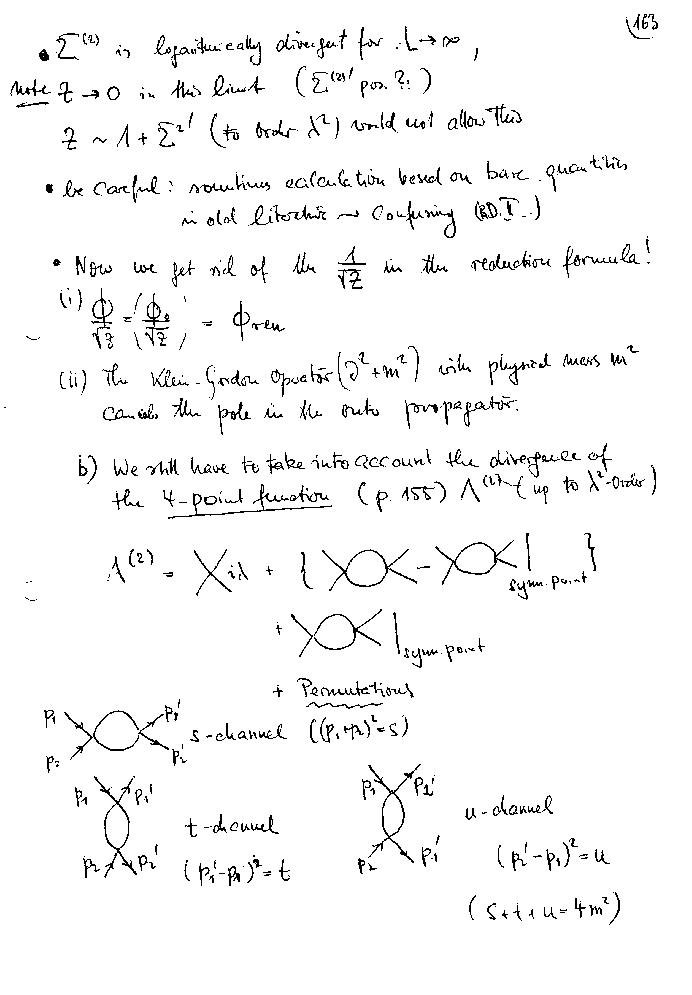 163
• Σ^(2) is logarithmically divergent for L → ∞,
Note Z → 0 in this limit (Σ^(2)' pos.?!)
Z ~ 1 + Σ^2' (to order λ²) would not allow this
• be careful: sometimes calculation based on bare quantities
in old literature → confusing (BD.I..)
• Now we get rid of the 1/√Z in the reduction formula!
(i) ϕ/√Z = (ϕ₀/√Z) = ϕren
(ii) The Klein-Gordon Operator (∂² + m²) with physical mass m²
cancels the pole in the outer propagator.
b) We still have to take into account the divergence of
the 4-point function (p. 155) Λ^(2) (up to λ²-order)
Λ^(2) = iλ + { - | symm. point }
+ | symm. point
+ Permutations
p₁ p₂ p₁' p₂' s-channel ((p₁+p₂)² = s)
p₁ p₁' p₂ p₂' t-channel
(p₁'-p₁)² = t
p₁ p₂' p₂ p₁' u-channel
(p₂'-p₁)² = u
(s + t + u = 4m²)